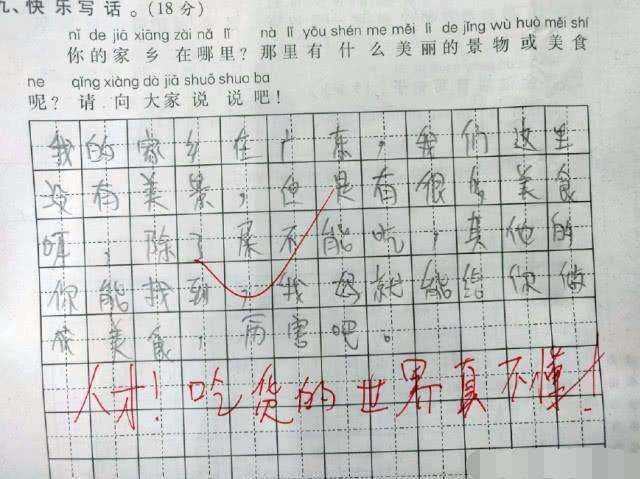 九、快乐写话。(18分)
nǐ de jiā xiāng zài nǎ lǐ nà lǐ yǒu shén me měi lì de jǐng wù huò měi shí
你的家乡在哪里?那里有什么美丽的景物或美食
ne qǐng xiàng dà jiā shuō shuo ba
呢?请向大家说说吧!
我的家乡在广东,我们这里
没有美景,但是有很多美食
哦,除了屎不能吃,其他的
你能找到,我妈就能给你做
成美食,厉害吧。
人才!吃货的世界真不懂!